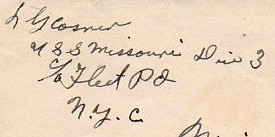 L G Cosner
U S S Missouri Div 3
c/o Fleet P O
N.Y.C.